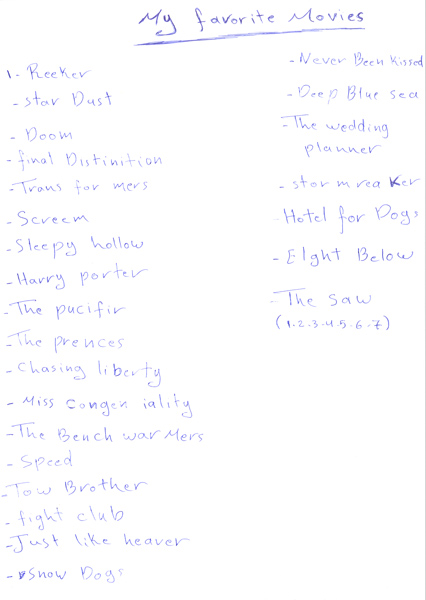 My favorite Movies
1- Reeker
- star Dust
- Doom
- final Distinition
- Trans for mers
- Screem
- Sleepy hollow
- Harry porter
- The pucifir
- The prences
- chasing liberty
- Miss Congen iality
- The Bench war Mers
- Speed
- Tow Brother
- fight club
- Just like heaver
- Snow Dogs
- Never Been Kissed
- Deep Blue sea
- The wedding
planner
- storm rea Ker
- Hotel for Dogs
- EIght Below
- The Saw
(1.2.3.4.5.6.7)